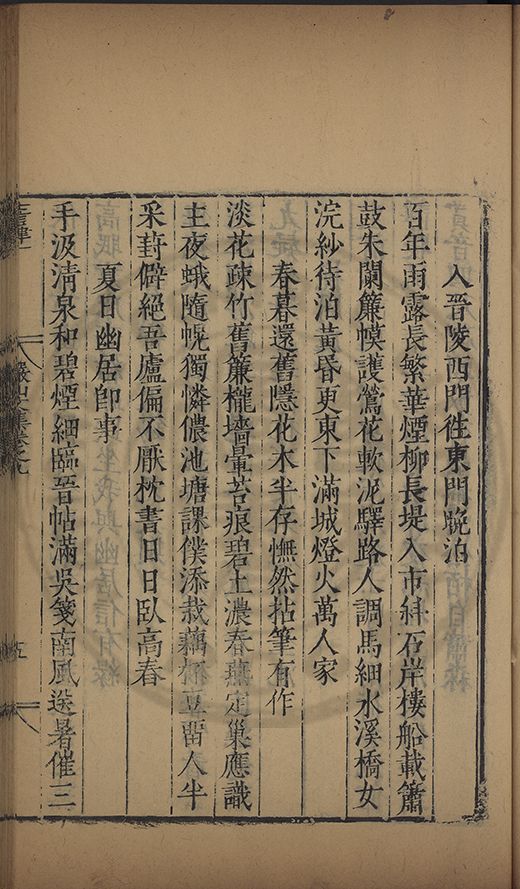 入晉陵西門往東門晚泊
百年雨露長繁華煙柳長堤入市斜石岸樓船載簫
鼓朱闌簾幙護鶯花軟泥驛路人調馬細水溪橋女
浣紗待泊黃昏更東下滿城燈火萬人家
春暮還舊隱花木半存憮然拈筆有作
淡花疎竹舊簾櫳墻暈苔痕碧土濃春燕定巢應識
主夜蛾隨幌獨憐儂池塘課僕添栽藕豆畱人半
采葑僻絕吾廬偏不厭枕書日日臥高舂
夏日幽居卽事
手汲淸泉和碧煙細臨晉帖滿吳箋南風送暑催三